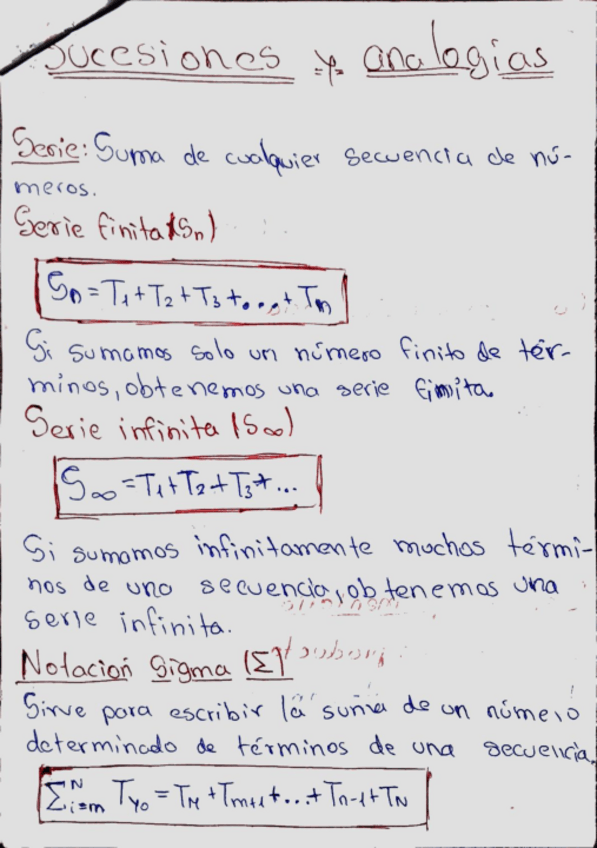 Sucesiones y analogías
Serie: Suma de cualquier secuencia de nú-
meros.
Serie finita (Sn)
Sn = T1 + T2 + T3 + ... + Tn
Si sumamos solo un número finito de tér-
minos, obtenemos una serie finita.
Serie infinita (S∞)
S∞ = T1 + T2 + T3 + ...
Si sumamos infinitamente muchos térmi-
nos de una secuencia, obtenemos una
serie infinita.
Notación Sigma (Σ)
Sirve para escribir la suma de un número
determinado de términos de una secuencia.
Σ^N_{i=m} Tyo = TM + Tm+1 + ... + Tn-1 + TN